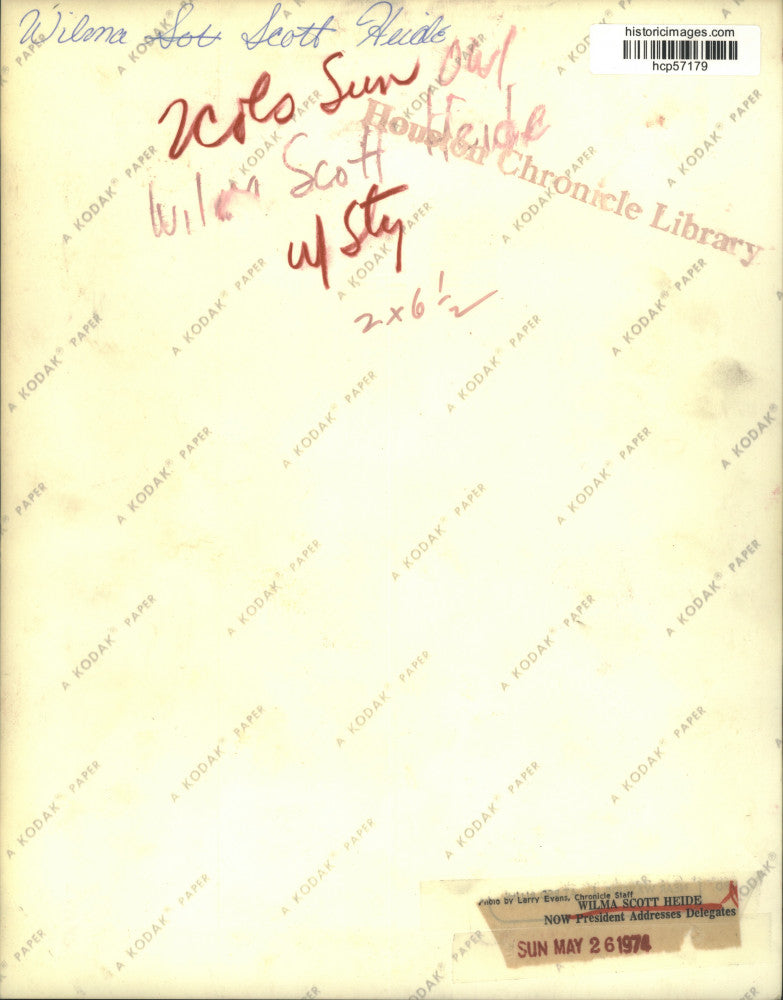 Wilma Sot Scott Heide
historicimages.com
hcp57179
2cols Sun Owl
Houston Chronicle Library
Wilma Scott Heide
w/Sty
2x6½
A KODAK® PAPER
Photo by Larry Evans, Chronicle Staff
WILMA SCOTT HEIDE
NOW President Addresses Delegates
SUN MAY 26 1974